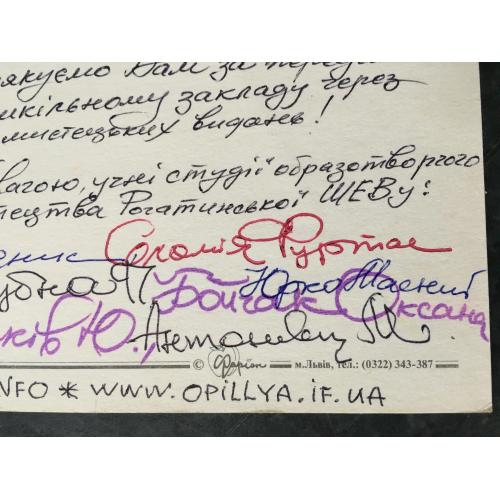 якуємо Вам за
шкільному закладу через
мистецьких видань!
вагою, учні студії образотворчого
тецтва Рогатинської ШЕВу:
Соломія Фуртас
Бойчак Оксана
Юрко
ків Ю., Антонович М.
© Фарion м.Львів, тел.: (0322) 343-387
INFO * WWW.OPILLYA.IF.UA